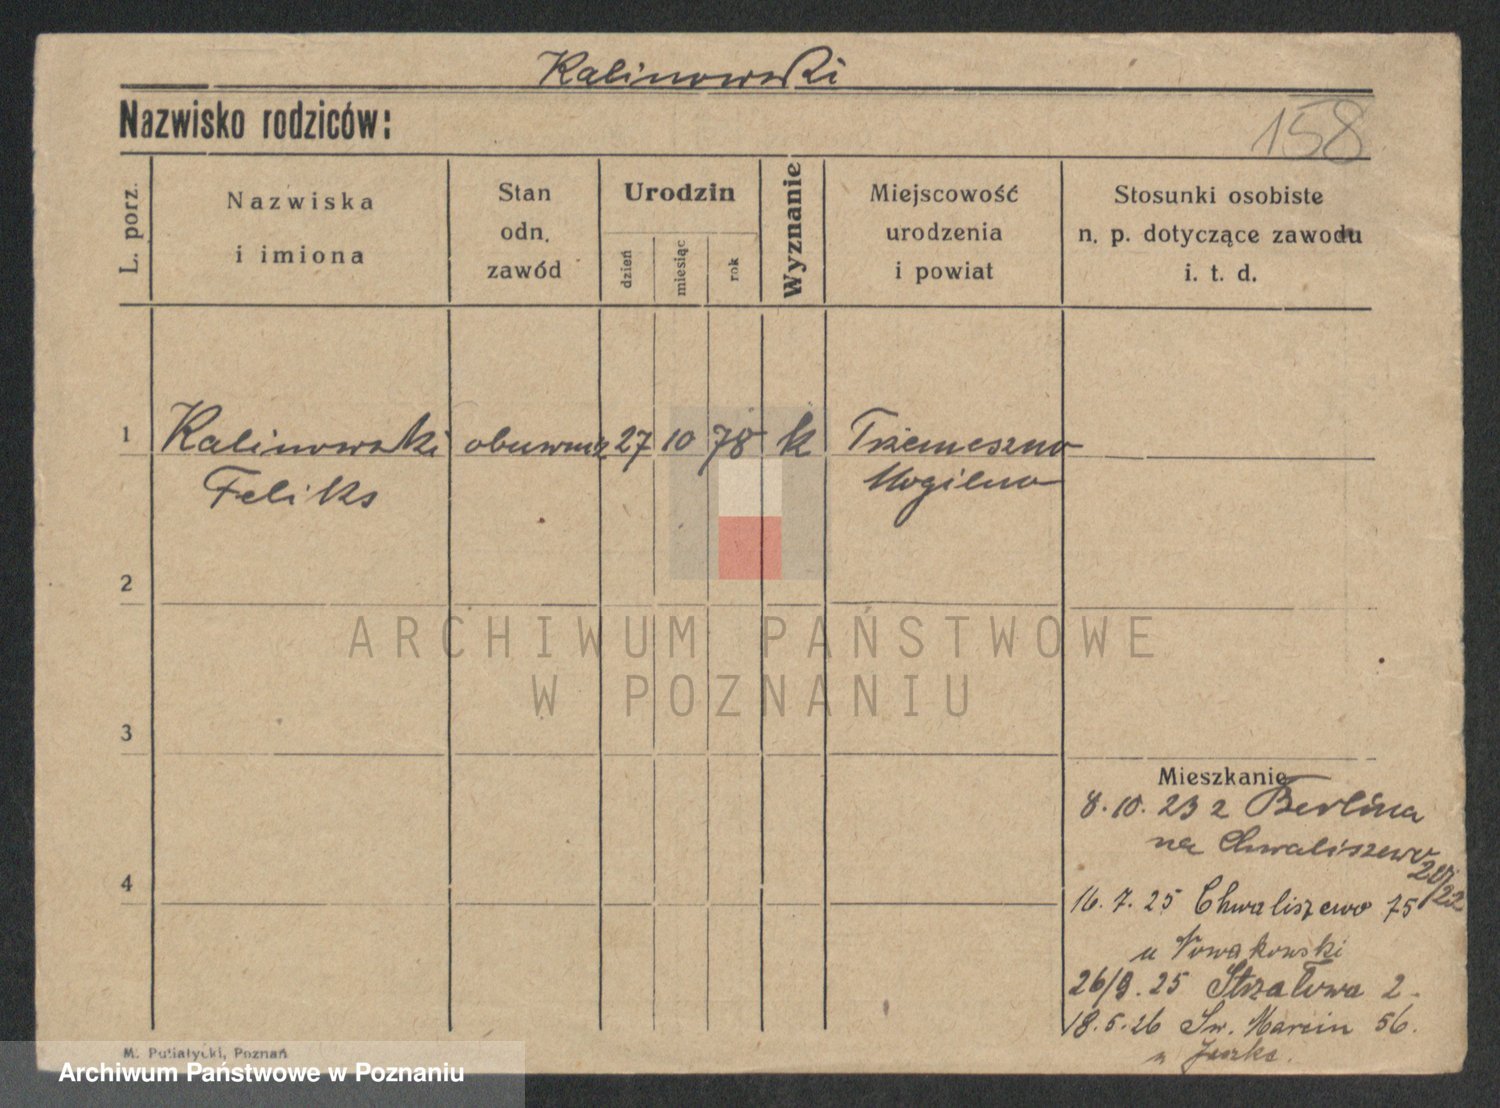 Kalinowski
Nazwisko rodziców:
158
L. porz.
Nazwiska
i imiona
Stan
odn.
zawód
Urodzin
dzień
miesiąc
rok
Wyznanie
Miejscowość
urodzenia
i powiat
Stosunki osobiste
n. p. dotyczące zawodu
i. t. d.
1 Kalinowski 27 10 78 k Trzemeszno
Feliks Mogilno
2
ARCHIWUM PAŃSTWOWE
W POZNANIU
3
Mieszkanie
8.10.23 z Berlina
na Chwaliszewo
4
16.7.25 Chwaliszewo 75
u Nowakowski
26/9.25 Strzałowa 2.
18.5.26 Św. Marcin 56.
M. Putiatycki, Poznań
Archiwum Państwowe w Poznaniu